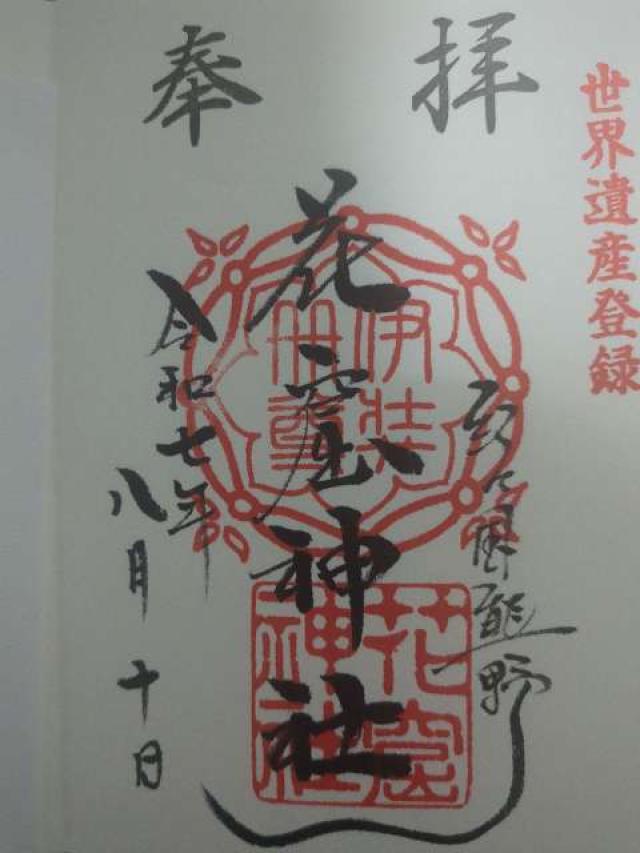 世界遺産登録
奉拝
国熊野
花窟神社
伊弉
冊尊
花窟
神社
令和七年
八月十日